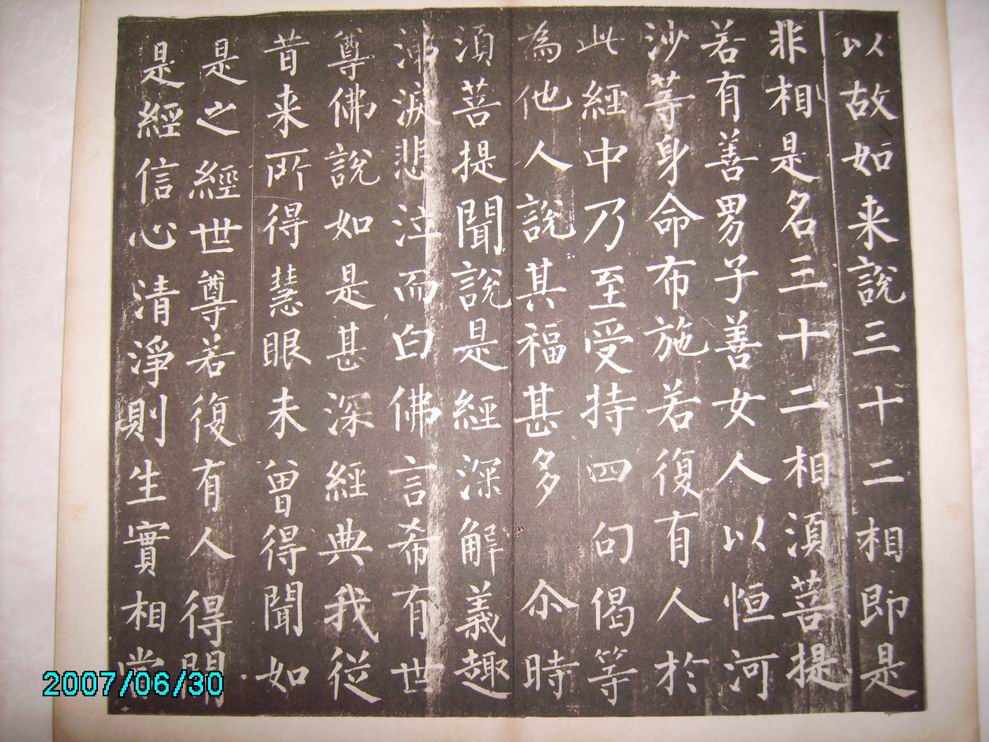 以故如来說三十二相即是
非相是名三十二相須菩提
若有善男子善女人以恒河
沙等身命布施若復有人於
此經中乃至受持四句偈等
為他人說其福甚多尒時
須菩提聞說是經深解義趣
涕淚悲泣而白佛言希有世
尊佛說如是甚深經典我從
昔来所得慧眼未曾得聞如
是之經世尊若復有人得聞
是經信心清淨則生實相當
2007/06/30